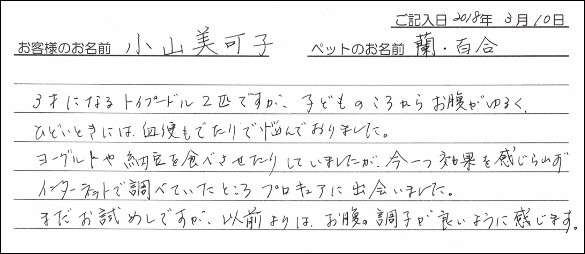 ご記入日 2018年 3月10日
お客様のお名前 小山美可子 ペットのお名前 蘭・百合
3才になるトイプードル2匹ですが、子どものころからお腹がゆるく、
ひどいときには血便もでたりで悩んでおりました。
ヨーグルトや納豆を食べさせたりしていましたが、今一つ効果を感じられず
インターネットで調べていたところプロキュアに出会いました。
まだお試めしですが、以前よりは、お腹の調子が良いように感じます。